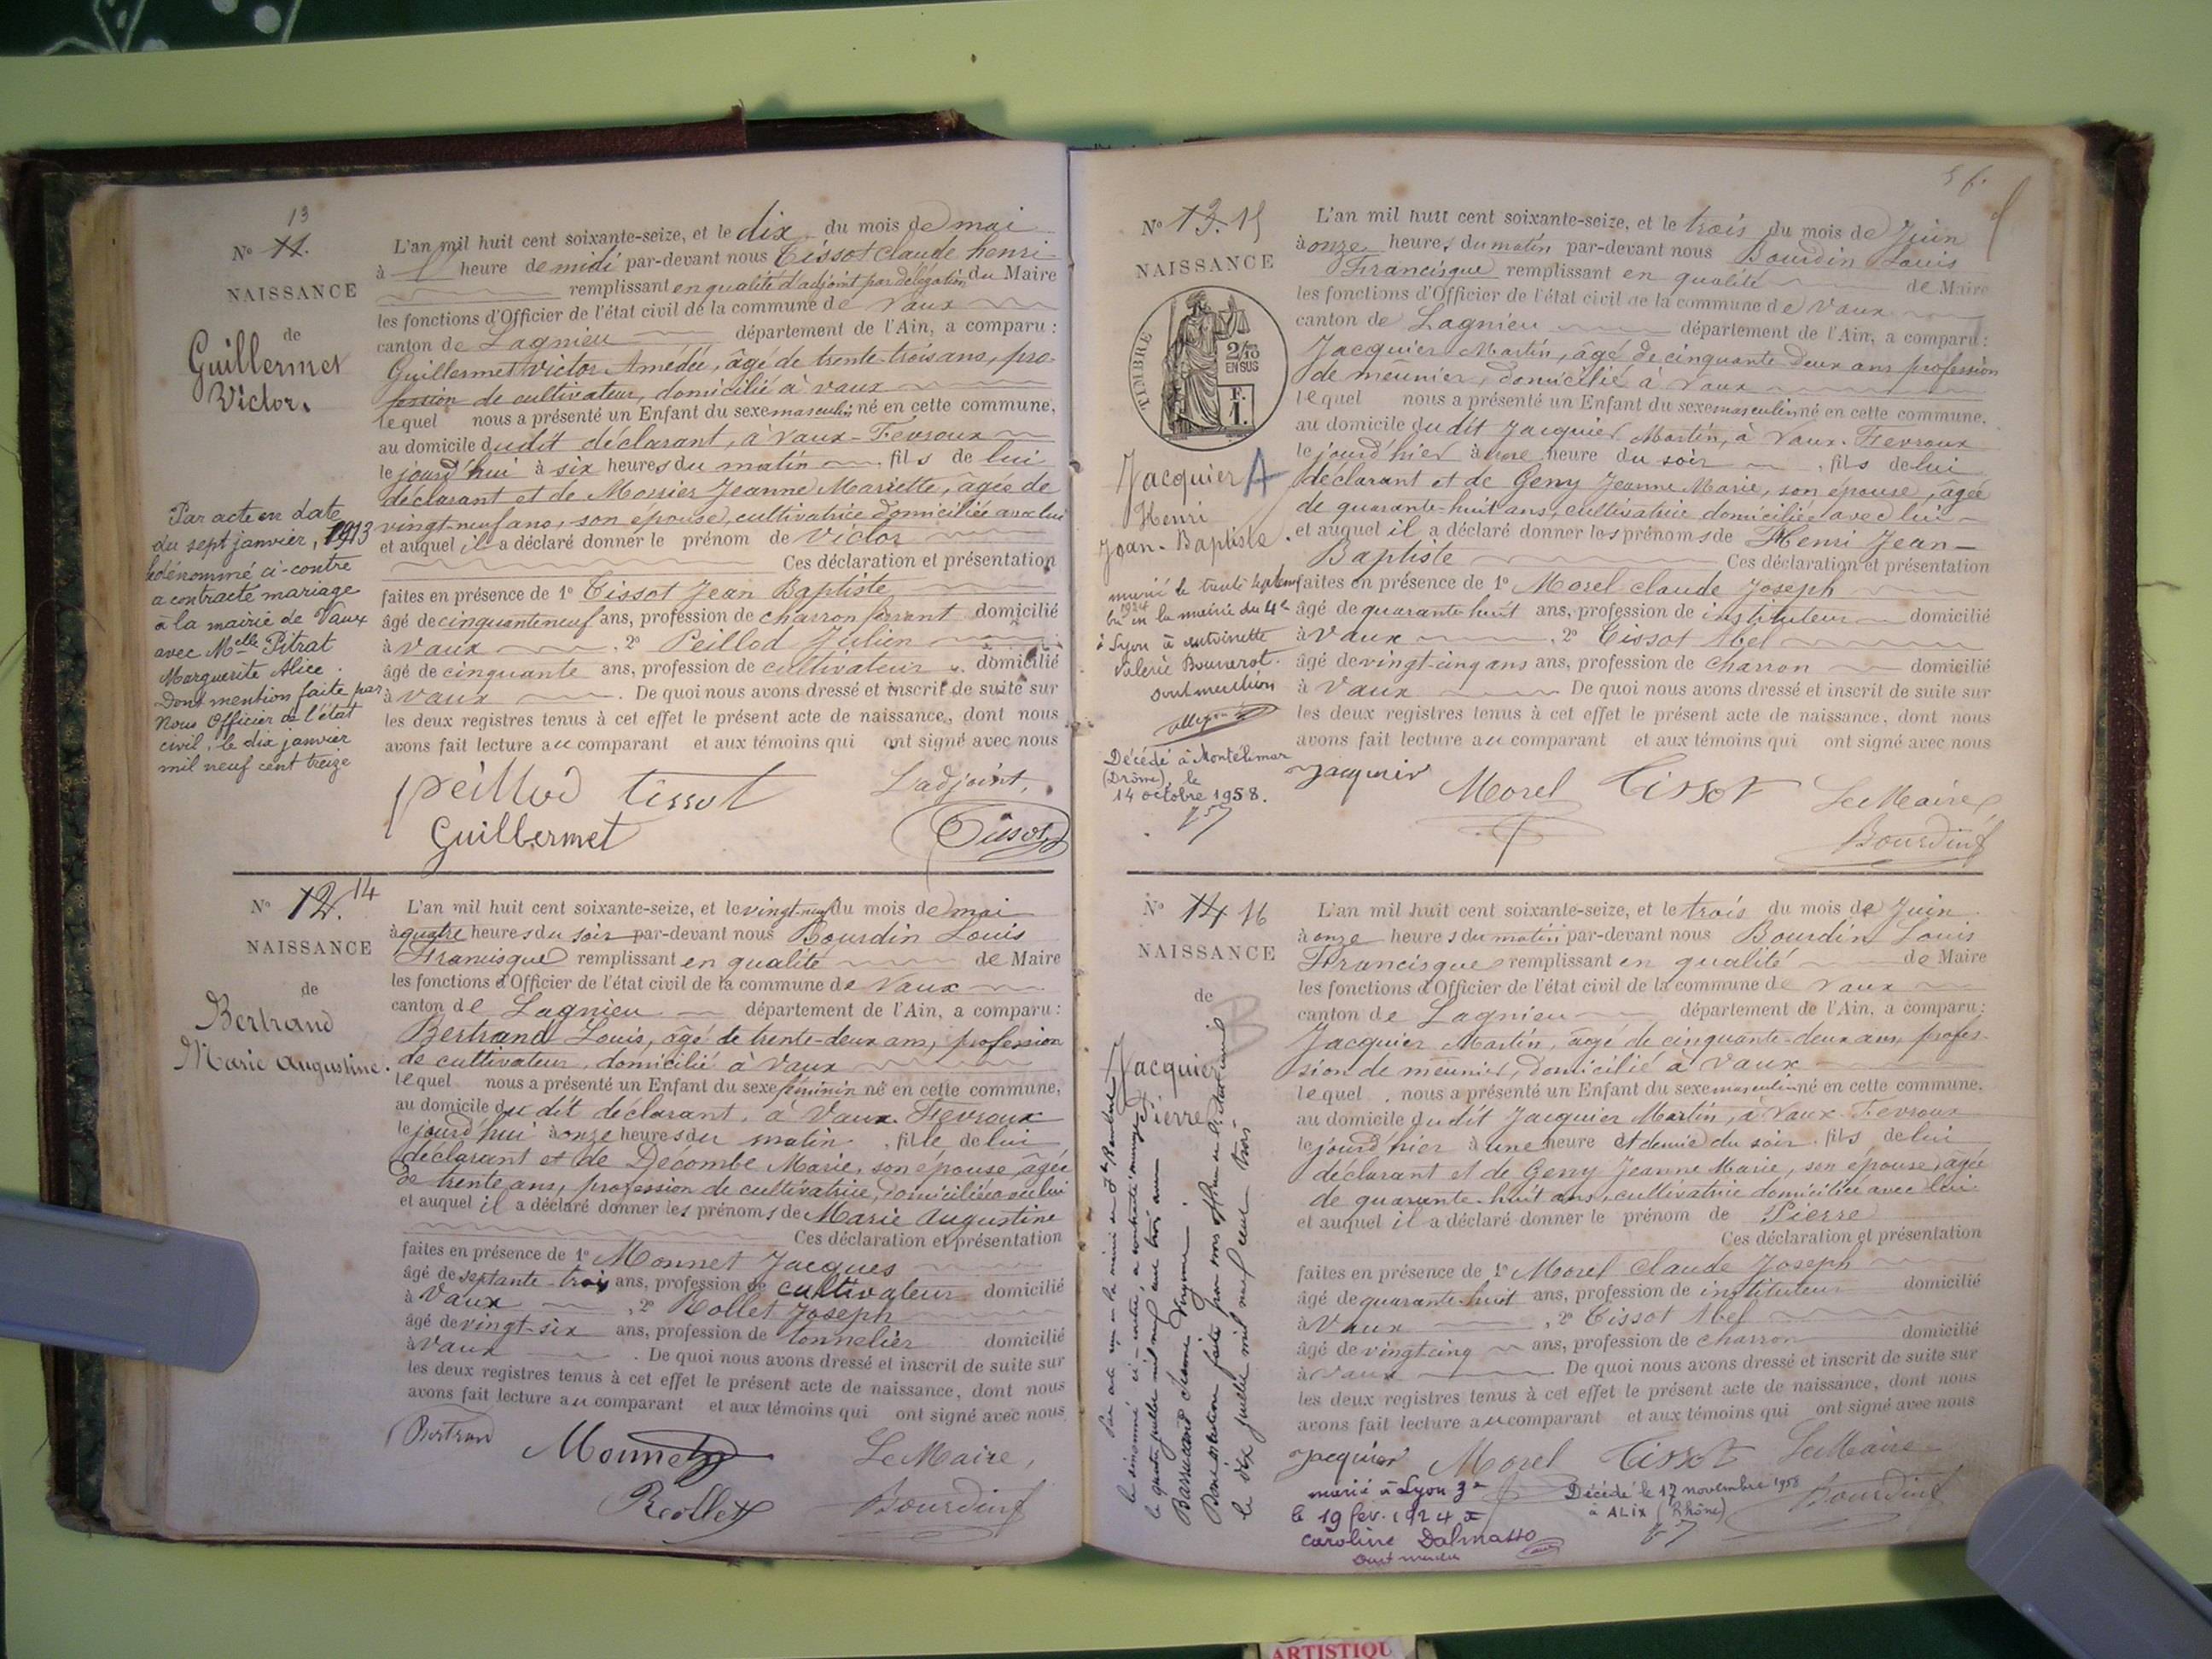 13
No 11.
NAISSANCE
de
Guillermet
Victor.
L'an mil huit cent soixante-seize, et le dix du mois de mai
à heure de midi par-devant nous Tissot claude henri
remplissant en qualité d'adjoint par délégation du Maire
les fonctions d'Officier de l'état civil de la commune de Vaux
canton de Lagnieu département de l'Ain, a comparu :
Guillermet Victor Amédée, âgé de trente-trois ans, pro-
fession de cultivateur, domicilié à vaux
lequel nous a présenté un Enfant du sexe masculin né en cette commune,
au domicile dudit déclarant, à Vaux-Fevroux
le jourd'hui à six heures du matin, fils de lui
déclarant et de Jeanne Mariette, âgée de
vingt-neuf ans, son épouse, cultivatrice domiciliée avec lui
et auquel il a déclaré donner le prénom de Victor
Ces déclaration et présentation
faites en présence de 1o Tissot Jean Baptiste
âgé de cinquante neuf ans, profession de charron domicilié
à Vaux, 2o Peillod Julien
âgé de cinquante ans, profession de cultivateur domicilié
à Vaux. De quoi nous avons dressé et inscrit de suite sur
les deux registres tenus à cet effet le présent acte de naissance, dont nous
avons fait lecture au comparant et aux témoins qui ont signé avec nous
Peillod Tissot L'adjoint,
Guillermet Tissot
Par acte en date
du sept janvier, 1913
le dénommé ci-contre
a contracté mariage
à la mairie de Vaux
avec Melle Pitrat
Marguerite Alice.
Dont mention faite par
Nous Officier de l'état
civil, le dix janvier
mil neuf cent treize
No 12. 14
NAISSANCE
de
Bertrand
Marie Augustine.
L'an mil huit cent soixante-seize, et le vingt-neuf du mois de mai
à quatre heures du soir par-devant nous Bourdin Louis
Francisque remplissant en qualité de Maire
les fonctions d'Officier de l'état civil de la commune de Vaux
canton de Lagnieu département de l'Ain, a comparu :
Bertrand Louis, âgé de trente-deux ans, profession
de cultivateur, domicilié à Vaux
lequel nous a présenté un Enfant du sexe féminin né en cette commune,
au domicile dudit déclarant, à Vaux-Fevroux
le jourd'hui à onze heures du matin, fille de lui
déclarant et de Décombe Marie, son épouse, âgée
de trente ans, profession de cultivatrice, domiciliée avec lui
et auquel il a déclaré donner les prénoms de Marie Augustine
Ces déclaration et présentation
faites en présence de 1o Monnet Jacques
âgé de septante-trois ans, profession de cultivateur domicilié
à Vaux, 2o Rollet Joseph
âgé de vingt-six ans, profession de tonnelier domicilié
à Vaux. De quoi nous avons dressé et inscrit de suite sur
les deux registres tenus à cet effet le présent acte de naissance, dont nous
avons fait lecture au comparant et aux témoins qui ont signé avec nous
Bertrand Monnet Le Maire,
Rollet Bourdin f
No 13. 15
NAISSANCE
TIMBRE
2/10
EN SUS
F.
1.
Jacquier A
Henri
Jean-Baptiste.
L'an mil huit cent soixante-seize, et le trois du mois de Juin
à onze heures du matin par-devant nous Bourdin Louis
Francisque remplissant en qualité de Maire
les fonctions d'Officier de l'état civil de la commune de Vaux
canton de Lagnieu département de l'Ain, a comparu :
Jacquier Martin, âgé de cinquante deux ans profession
de meunier, domicilié à Vaux
lequel nous a présenté un Enfant du sexe masculin né en cette commune,
au domicile dudit Jacquier Martin, à Vaux-Fevroux
le jourd'hier à une heure du soir, fils de lui
déclarant et de Geny Jeanne Marie, son épouse, âgée
de quarante-huit ans, cultivatrice domiciliée avec lui
et auquel il a déclaré donner les prénoms de Henri Jean-
Baptiste Ces déclaration et présentation
faites en présence de 1o Morel claude Joseph
âgé de quarante huit ans, profession de instituteur domicilié
à Vaux, 2o Tissot Abel
âgé de vingt-cinq ans ans, profession de charron domicilié
à Vaux De quoi nous avons dressé et inscrit de suite sur
les deux registres tenus à cet effet le présent acte de naissance, dont nous
avons fait lecture au comparant et aux témoins qui ont signé avec nous
Jacquier Morel Tissot Le Maire,
Bourdin f
marié le trente septem
bre 1924 en la mairie du 4e
à Lyon à Antoinette
Valerie Bouverot.
dont mention
Décédé à Montélimar
(Drôme), le
14 octobre 1958.
No 14 16
NAISSANCE
de
B
Jacquier
Pierre
L'an mil huit cent soixante-seize, et le trois du mois de Juin
à onze heures du matin par-devant nous Bourdin Louis
Francisque remplissant en qualité de Maire
les fonctions d'Officier de l'état civil de la commune de Vaux
canton de Lagnieu département de l'Ain, a comparu :
Jacquier Martin, âgé de cinquante-deux ans, profes-
sion de meunier, domicilié à Vaux
lequel nous a présenté un Enfant du sexe masculin né en cette commune,
au domicile dudit Jacquier Martin, à Vaux-Fevroux
le jourd'hier à une heure et demie du soir, fils de lui
déclarant et de Geny Jeanne Marie, son épouse, âgée
de quarante-huit ans, cultivatrice domiciliée avec lui
et auquel il a déclaré donner le prénom de Pierre
Ces déclaration et présentation
faites en présence de 1o Morel Claude Joseph
âgé de quarante-huit ans, profession de instituteur domicilié
à Vaux, 2o Tissot Abel
âgé de vingt cinq ans, profession de charron domicilié
à Vaux De quoi nous avons dressé et inscrit de suite sur
les deux registres tenus à cet effet le présent acte de naissance, dont nous
avons fait lecture au comparant et aux témoins qui ont signé avec nous
Jacquier Morel Tissot Le Maire
Bourdin f
marié à Lyon 3e
le 19 fév. 1924 à
Caroline Dalmasso
Décédé le 17 novembre 1958
à ALIX (Rhône)
le dénommé ci-contre, a contracté mariage
le quatre juillet mil neuf cent trois avec
Jeanne
Dont mention faite par nous officier de l'état civil
le dix juillet mil neuf cent trois
ARTISTIQU